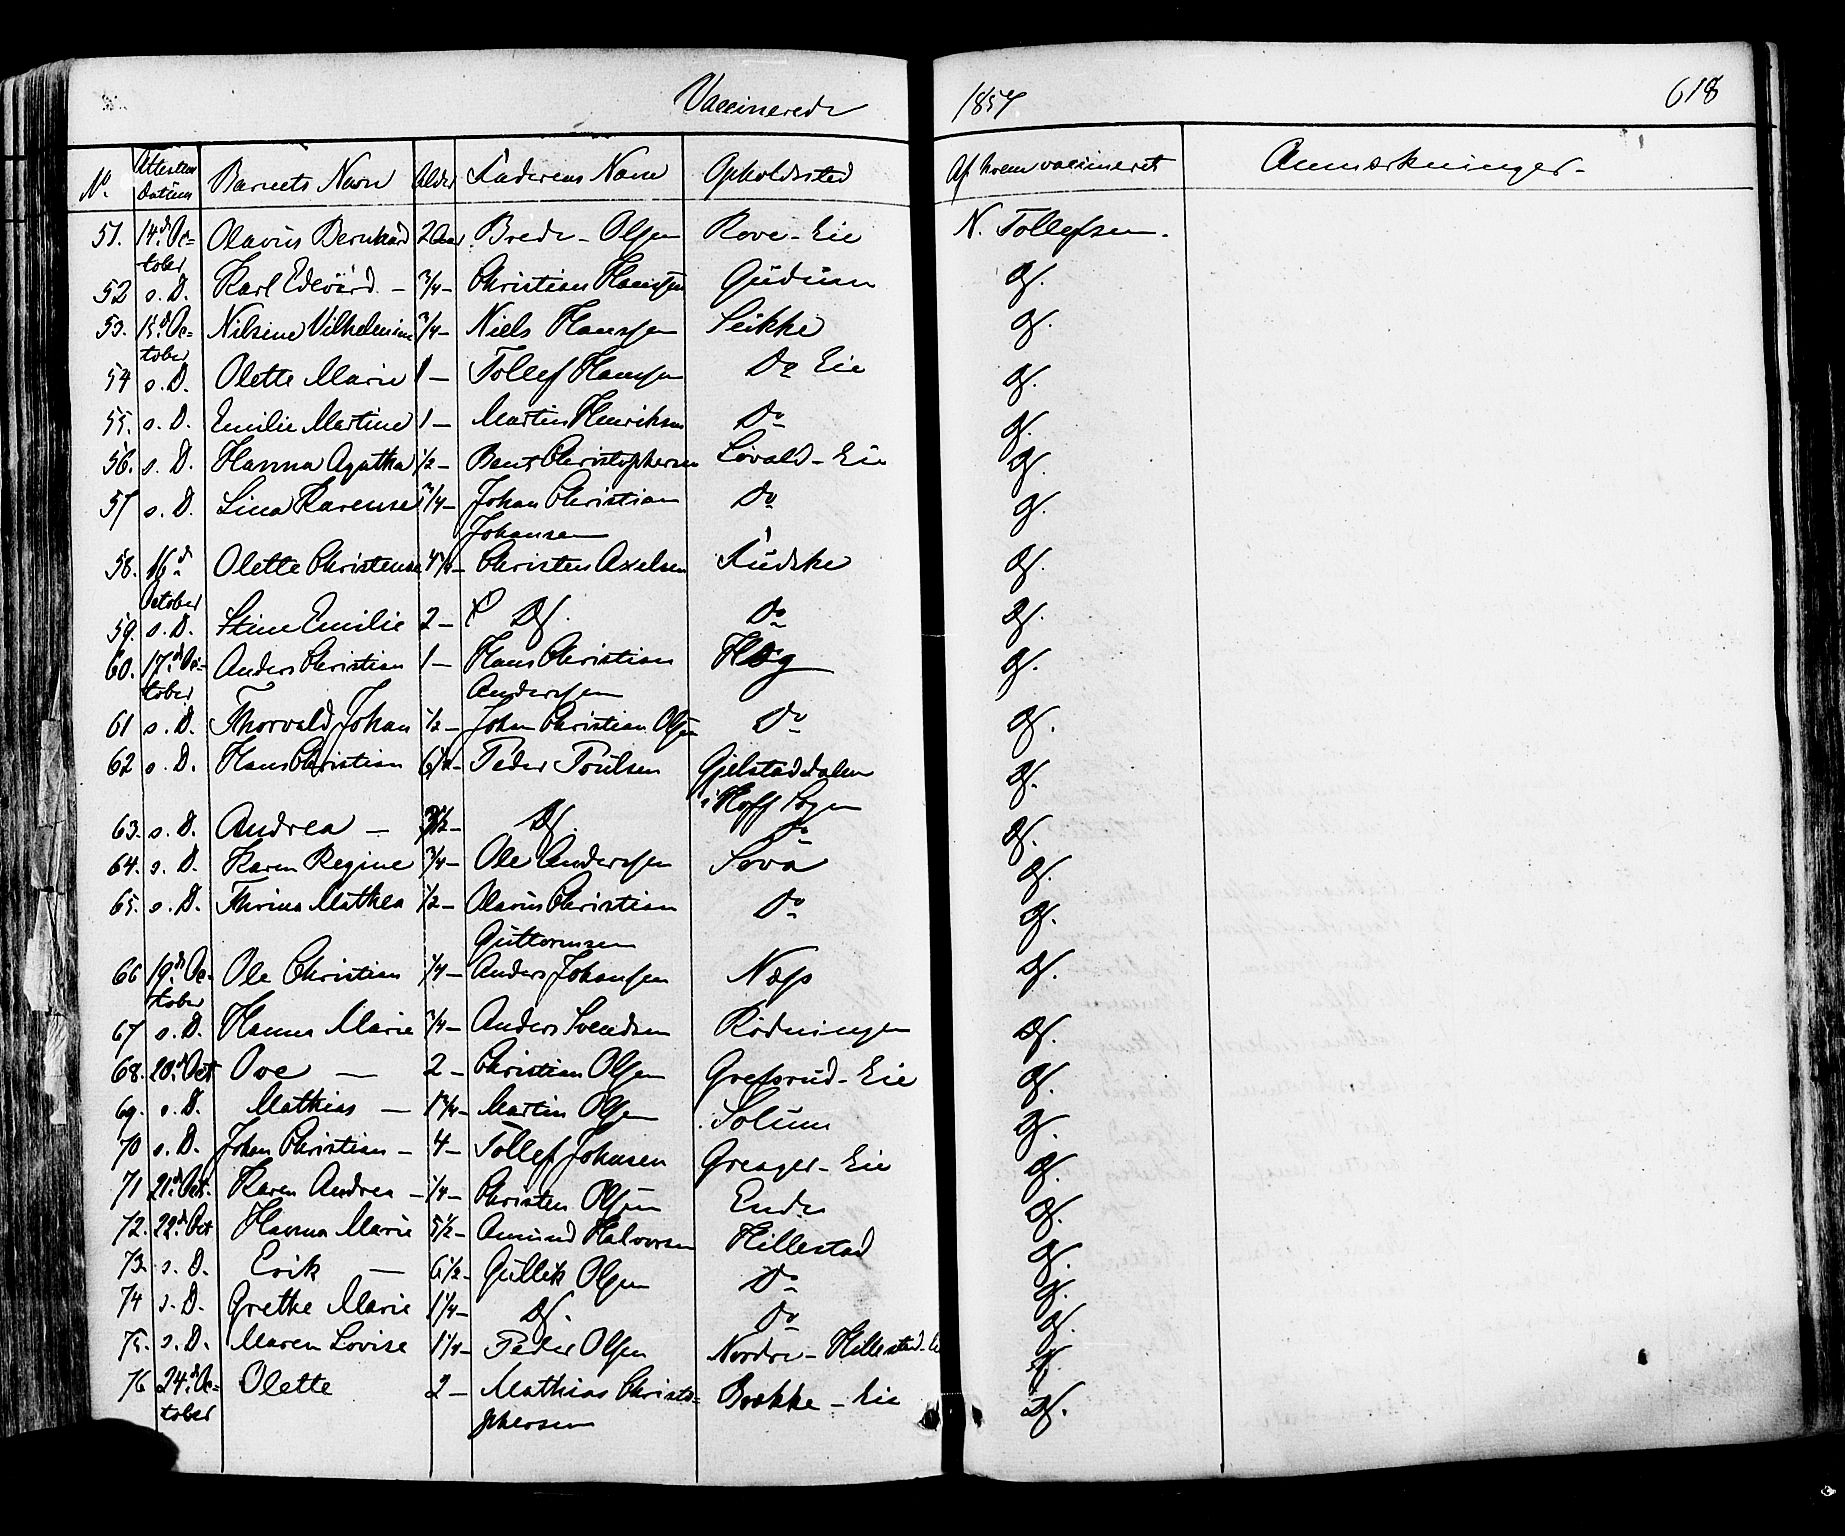 Vaccinerede 1857 618
No. Attestens Datum Barnets Navn Alder Faderens Navn Opholdssted Af hvem vaccineret Anmærkninger
51. 14d Oc- Olavus Bernhard 2 Aar Brede Olsen Rove-Eie N. Tollefsen.
tober
52 s. D. Karl Edvard - 3/4 - Christian Hansen Gudum Df.
53. 15d Oc- Nilsine Vilhelmine 3/4 - Niels Hanssen Seikke Df.
tober
54 s. D. Olette Marie 1 - Tollef Hansen Do Eie Df.
55. s. D. Emilie Martine 1 - Martin Henriksen Do Df.
56. s. D. Hanna Agatha 1/2 - Bent Christophersen Løvald-Eie Df.
57 s. D. Lina Karense 3/4 - Johan Christian Do Df.
Johansen
58. 16d Olette Christense Christen Axelsen Df.
October
59. s. D. Stine Emilie 2 - Df. Do Df.
60. 17d Oc- Anders Christian 1 - Hans Christian Df.
tober Anderssen
61 s. D. Thorvald Johan 1/2 - John Christian Olsen Do Df.
62 s. D. Hans Christian Peder Poulsen Gjelstaddalen Df.
i Hoff Sogn
63. s. D. Andrea - Df. Do Df.
64. s. D. Karen Regine 3/4 - Ole Anderssen Df.
65. s. D. Thrina Mathea 1/2 - Olavus Christian Do Df.
Guttormsen
66 19d Oc- Ole Christian 1/4 - Anders Johansen Næss Df.
tober
67 s. D. Hanna Marie 3/4 - Anders Svendsen Rødningen Df.
68. 20d Oct Ove - 2 - Christian Olsen Grefsrud-Eie Df.
69. s. D. Mathias - 1 3/4 - Martin Olsen Solum Df.
70 s. D. Johan Christian - 4 - Tollef Johnsen Greager-Eie Df.
71 21d Oct. Karen Andrea - 1/4 - Christen Olsen Df.
72. 22d Oct Hanna Marie 5 1/2 - Amund Halvorsen Hillestad Df.
73. s. D. Erik - 6 1/2 - Gullik Olsen Do Df.
74 s. D. Grethe Marie 1 1/4 - Df. Do Df.
75. s. D. Maren Lovise 1 1/4 - Peder Olsen Nordre-Hillestad-Eie Df.
76 24d Oc- Olette 2 - Mathias Christo- Bække-Eie Df.
tober phersen